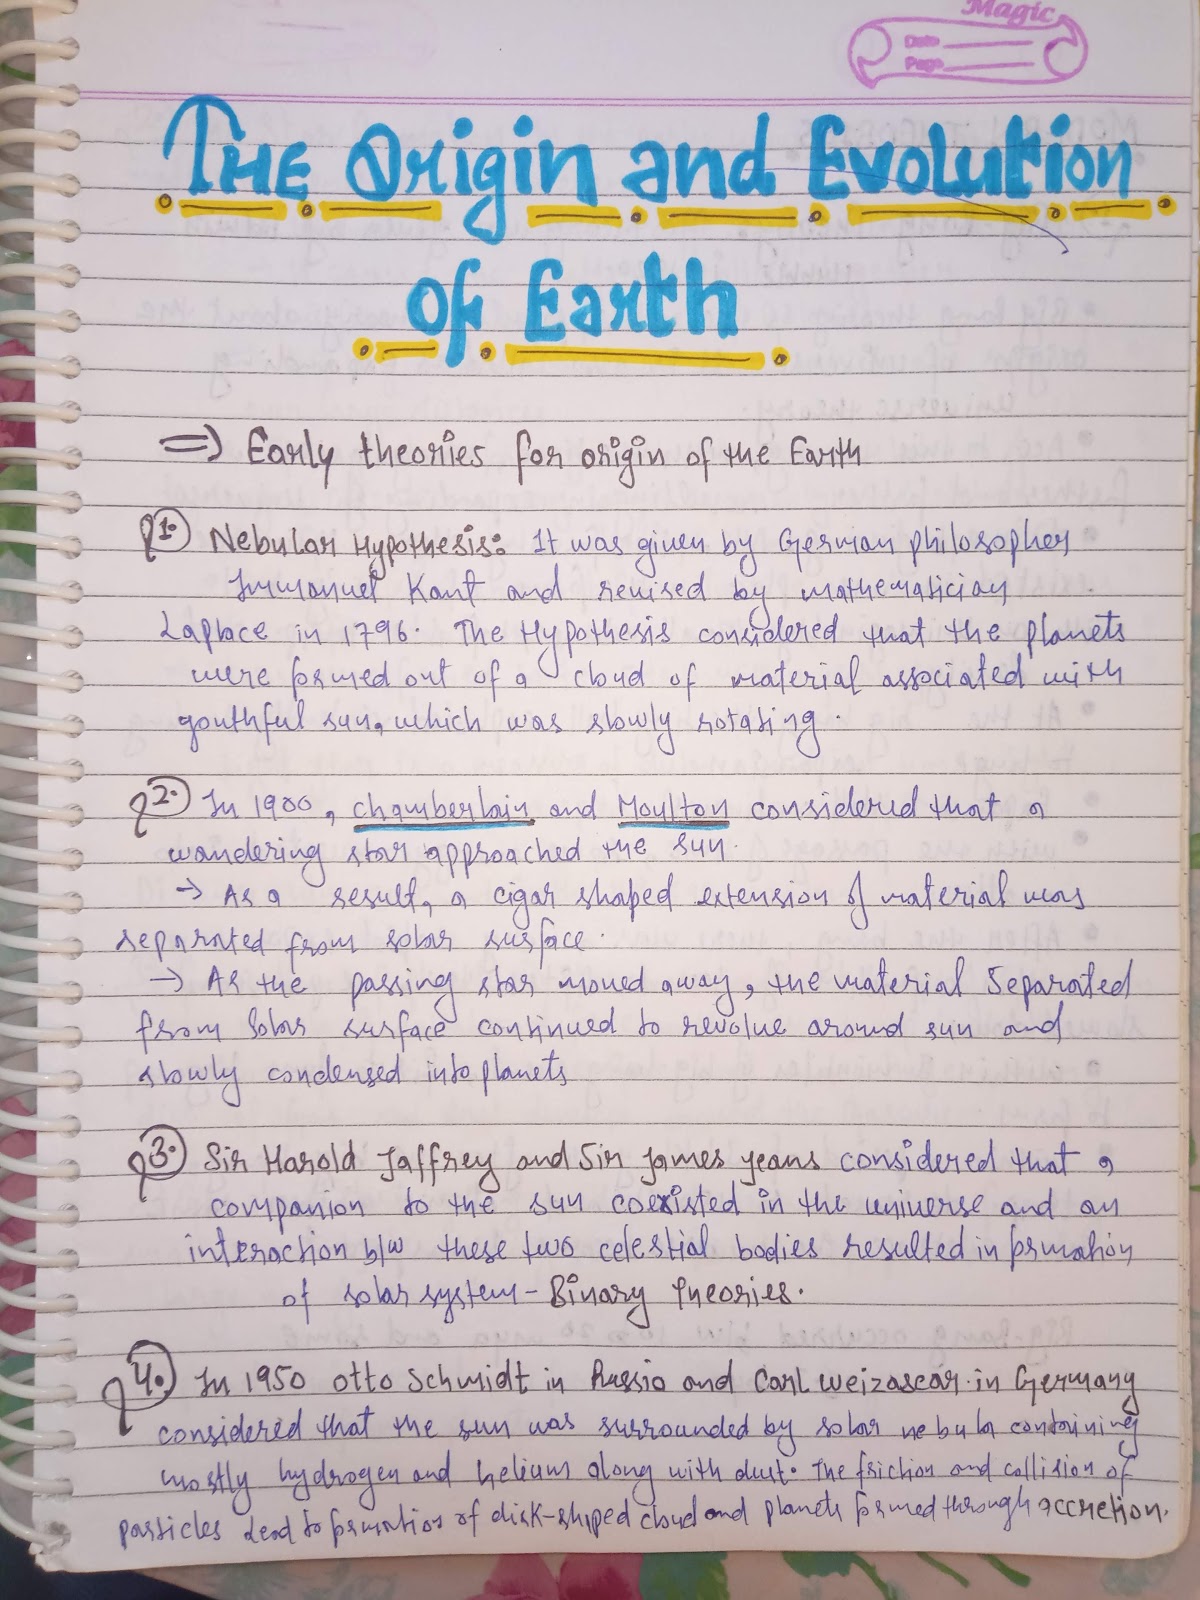 Magic
Date
Page
THE Origin and Evolution
of Earth
=> Early theories for origin of the Earth
1. Nebular Hypothesis: It was given by German philosopher
Immanuel Kant and revised by mathematician
Laplace in 1796. The Hypothesis considered that the planets
were formed out of a cloud of material associated with
youthful sun, which was slowly rotating.
2. In 1900, Chamberlain and Moulton considered that a
wandering star approached the sun.
→ As a result, a cigar shaped extension of material was
separated from solar surface.
→ As the passing star moved away, the material separated
from solar surface continued to revolve around sun and
slowly condensed into planets
3. Sir Harold Jaffrey and Sir James Jeans considered that a
companion to the sun coexisted in the universe and an
interaction b/w these two celestial bodies resulted in formation
of solar system - Binary Theories.
4. In 1950 Otto Schmidt in Russia and Carl Weizascar in Germany
considered that the sun was surrounded by solar nebula containing
mostly hydrogen and helium along with dust. The friction and collision of
particles lead to formation of disk-shaped cloud and planets formed through accretion.